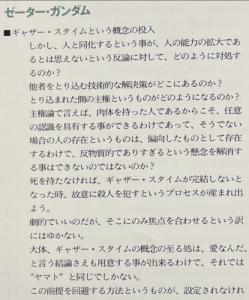 ゼーター・ガンダム
■ギャザー・スタイムという概念の投入
しかし、人と同化するという事が、人の能力の拡大であ
るとは思えないという反論に対して、どのように対処す
るのか?
他者をとり込む技術的な解決策がどこにあるのか?
とり込まれた側の主権というものがどのようになるのか?
主権論で言えば、肉体を持った人であるからこそ、任意
の認識を具有する事ができるわけであって、そうでない
場合の人の存在というものは、偏向したものとして存在
するわけで、反物質的でありすぎるという懸念を解消す
る事はできないのではないのか?
死を待たなければ、ギャザー・スタイムが完結しないと
なった時、故意に殺人を犯すというプロセスが産まれ出
よう。
劇的でいいのだが、そこにのみ焦点を合わせるという訳
にはゆかない。
大体、ギャザー・スタイムの概念の至る処は、愛なんだ、
と言う結論さえも用意する事が出来るわけで、それでは
"ヤマト"と同じでしかない。
この前提を回避する方法というものが、設定されなけれ